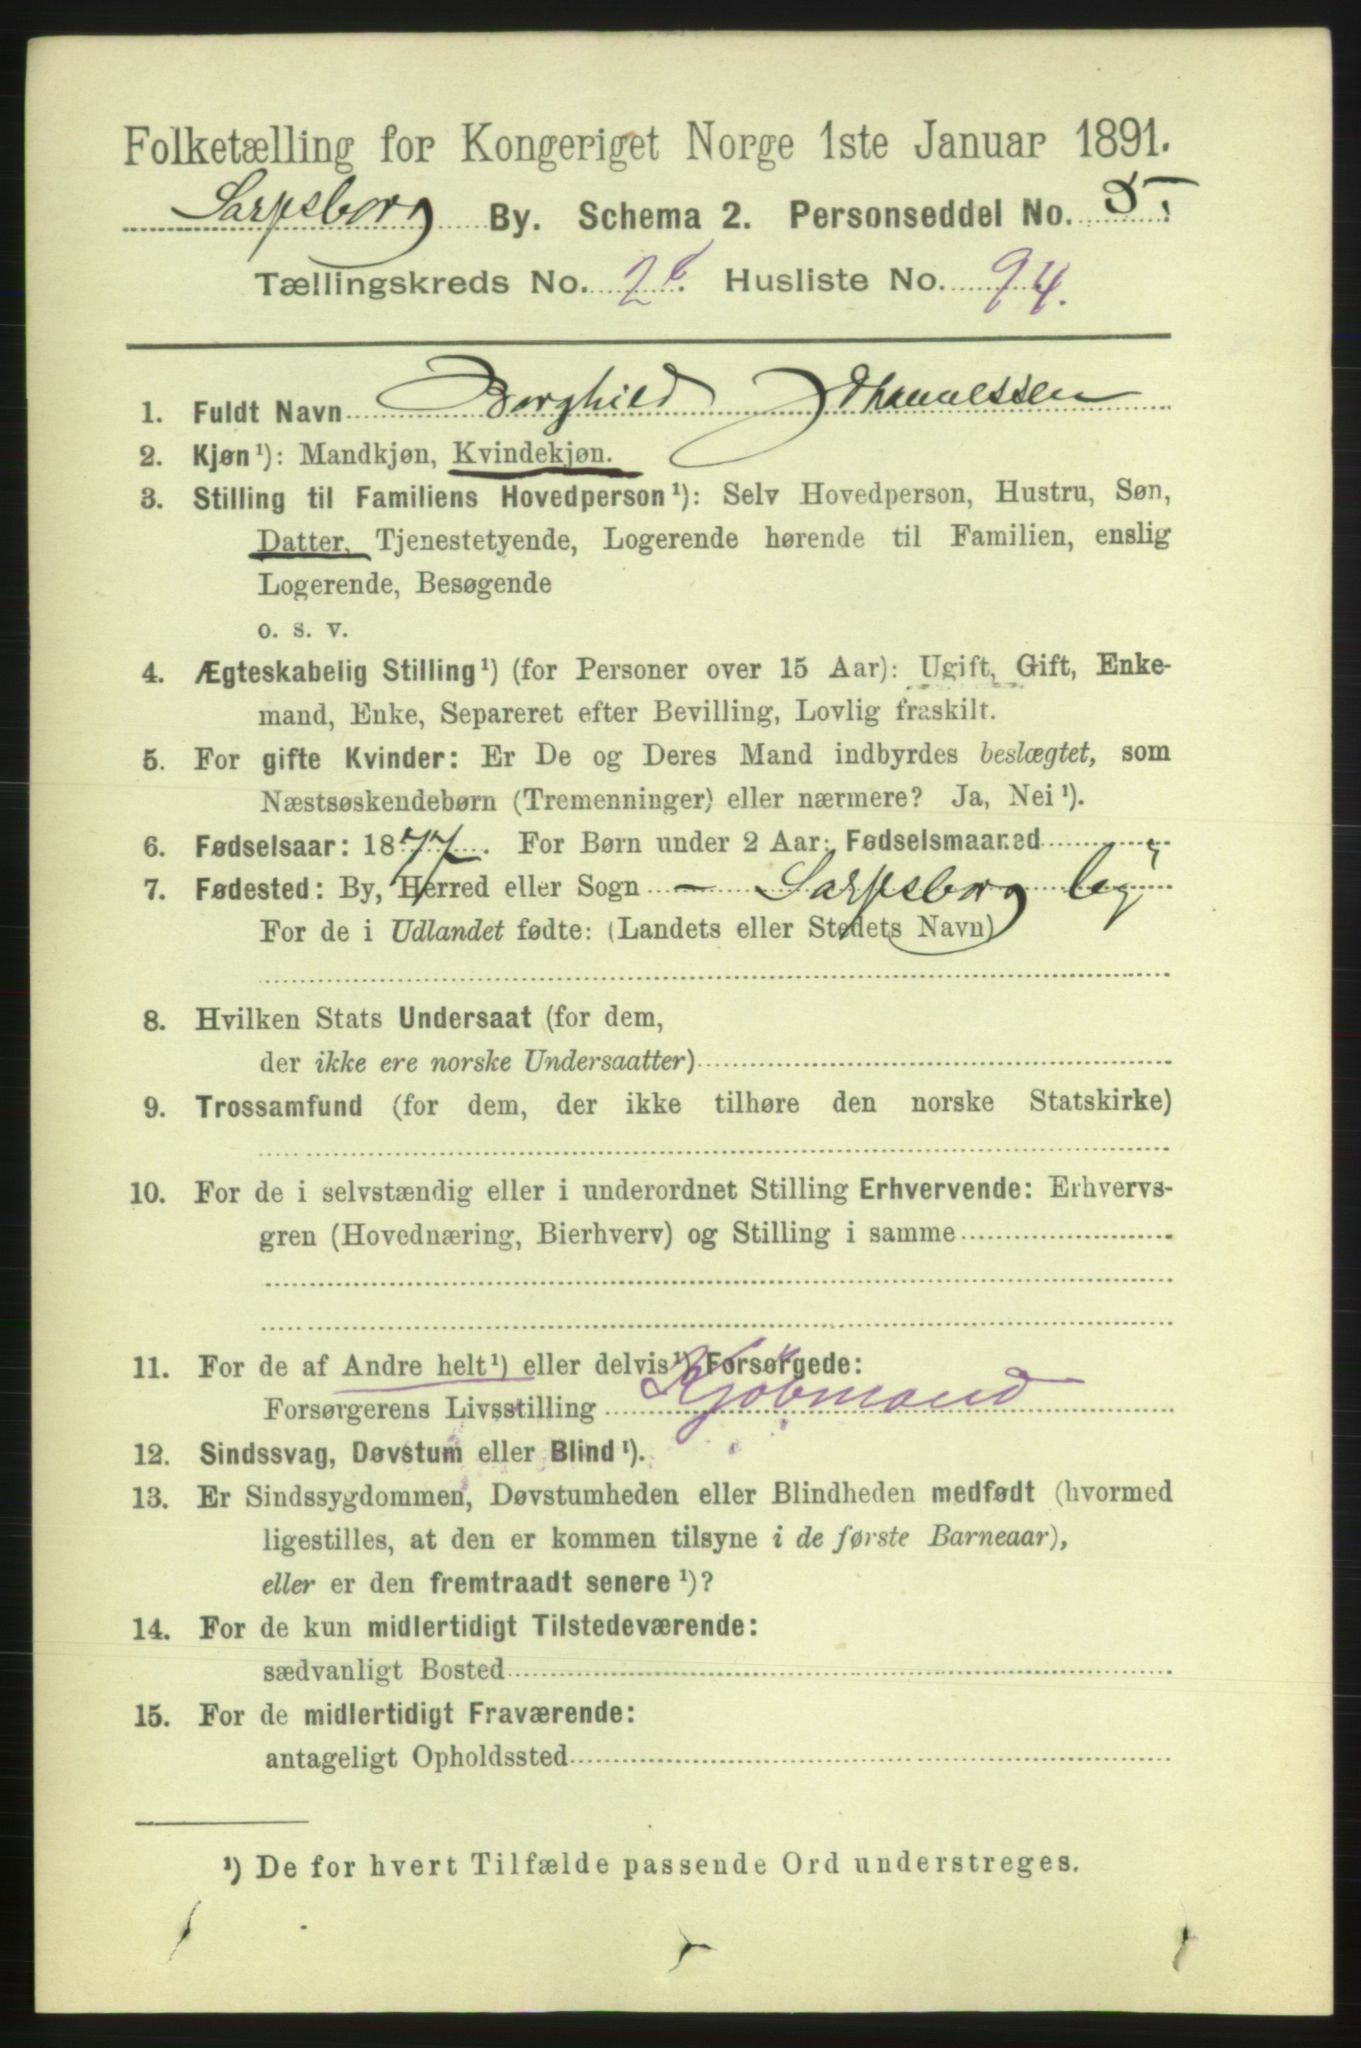 Folketælling for Kongeriget Norge 1ste Januar 1891.
Sarpsborg By. Schema 2. Personseddel No. 5.
Tællingskreds No. 2b. Husliste No. 94.
1. Fuldt Navn Borghild Johannessen
2. Kjøn¹): Mandkjøn, Kvindekjøn.
3. Stilling til Familiens Hovedperson¹): Selv Hovedperson, Hustru, Søn,
Datter, Tjenestetyende, Logerende hørende til Familien, enslig
Logerende, Besøgende
o. s. v.
4. Ægteskabelig Stilling¹) (for Personer over 15 Aar): Ugift, Gift, Enke-
mand, Enke, Separeret efter Bevilling, Lovlig fraskilt.
5. For gifte Kvinder: Er De og Deres Mand indbyrdes beslægtet, som
Næstsøskendebørn (Tremenninger) eller nærmere? Ja, Nei¹).
6. Fødselsaar: 1877. For Børn under 2 Aar: Fødselsmaaned
7. Fødested: By, Herred eller Sogn - Sarpsborg by
For de i Udlandet fødte: (Landets eller Stedets Navn)
8. Hvilken Stats Undersaat (for dem,
der ikke ere norske Undersaatter)
9. Trossamfund (for dem, der ikke tilhøre den norske Statskirke)
10. For de i selvstændig eller i underordnet Stilling Erhvervende: Erhvervs-
gren (Hovednæring, Bierhverv) og Stilling i samme
11. For de af Andre helt¹) eller delvis¹) Forsørgede:
Forsørgerens Livsstilling Kjøbmand
12. Sindssvag, Døvstum eller Blind¹).
13. Er Sindssygdommen, Døvstumheden eller Blindheden medfødt (hvormed
ligestilles, at den er kommen tilsyne i de første Barneaar),
eller er den fremtraadt senere¹)?
14. For de kun midlertidigt Tilstedeværende:
sædvanligt Bosted
15. For de midlertidigt Fraværende:
antageligt Opholdssted
¹) De for hvert Tilfælde passende Ord understreges.